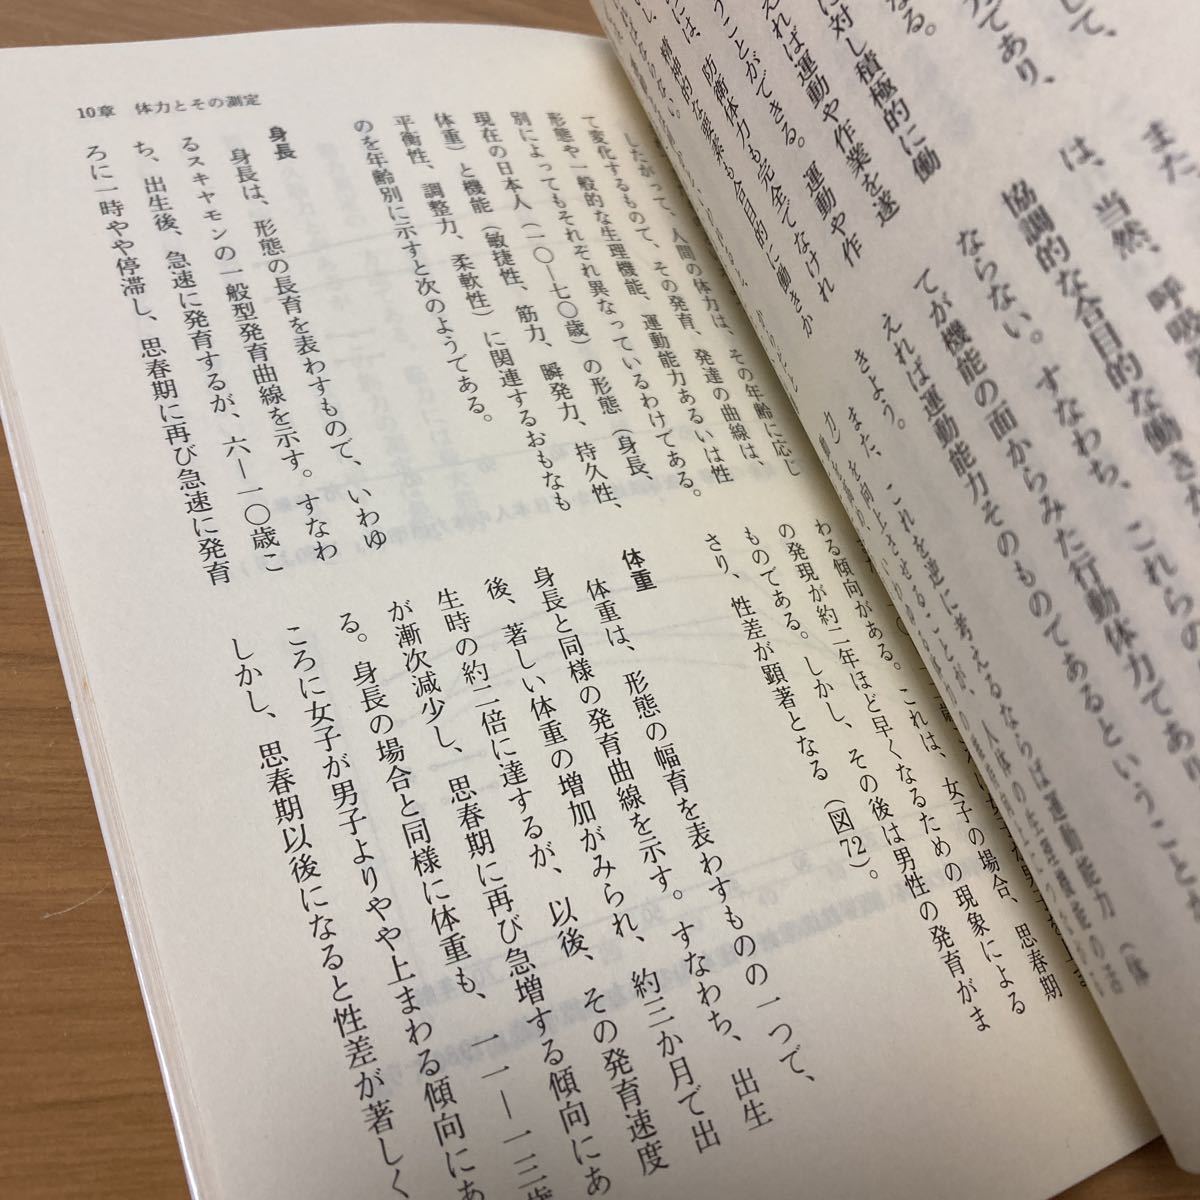 して、
であり、
なる。
に対し積極的に働
えれば運動や作業を遂
うことができる。運動や作
には、防衛体力も完全でなけれ
精神的な要素も合目的に働きか
また、
は、当然、呼吸器
協調的な合目的な働きが
ならない。すなわち、これらの
てが機能の面からみた行動体力であり
えれば運動能力そのものであるということが
きよう。
また、これを逆に考えるならば運動能力（体
10章 体力とその測定
したがって、人間の体力は、その年齢に応じ
て変化するもので、その発育、発達の曲線は、
形態や一般的な生理機能、運動能力あるいは性
別によってもそれぞれ異なっているわけである。
現在の日本人（二〇―七〇歳）の形態（身長、
体重）と機能（敏捷性、筋力、瞬発力、持久性、
平衡性、調整力、柔軟性）に関連するおもなも
のを年齢別に示すと次のようである。
身長
身長は、形態の長育を表わすもので、いわゆ
るスキャモンの一般型発育曲線を示す。すなわ
ち、出生後、急速に発育するが、六―一〇歳こ
ろに一時やや停滞し、思春期に再び急速に発育
わる傾向がある。これは、女子の場合、思春期
の発現が約二年ほど早くなるための現象による
ものである。しかし、その後は男性の発育がま
さり、性差が顕著となる（図72）。
体重
体重は、形態の幅育を表わすものの一つで、
身長と同様の発育曲線を示す。すなわち、出生
後、著しい体重の増加がみられ、約三か月で出
生時の約二倍に達するが、以後、その発育速度
が漸次減少し、思春期に再び急増する傾向にあ
る。身長の場合と同様に体重も、一一―一三歳
ころに女子が男子よりやや上まわる傾向にあ
しかし、思春期以後になると性差が著しく